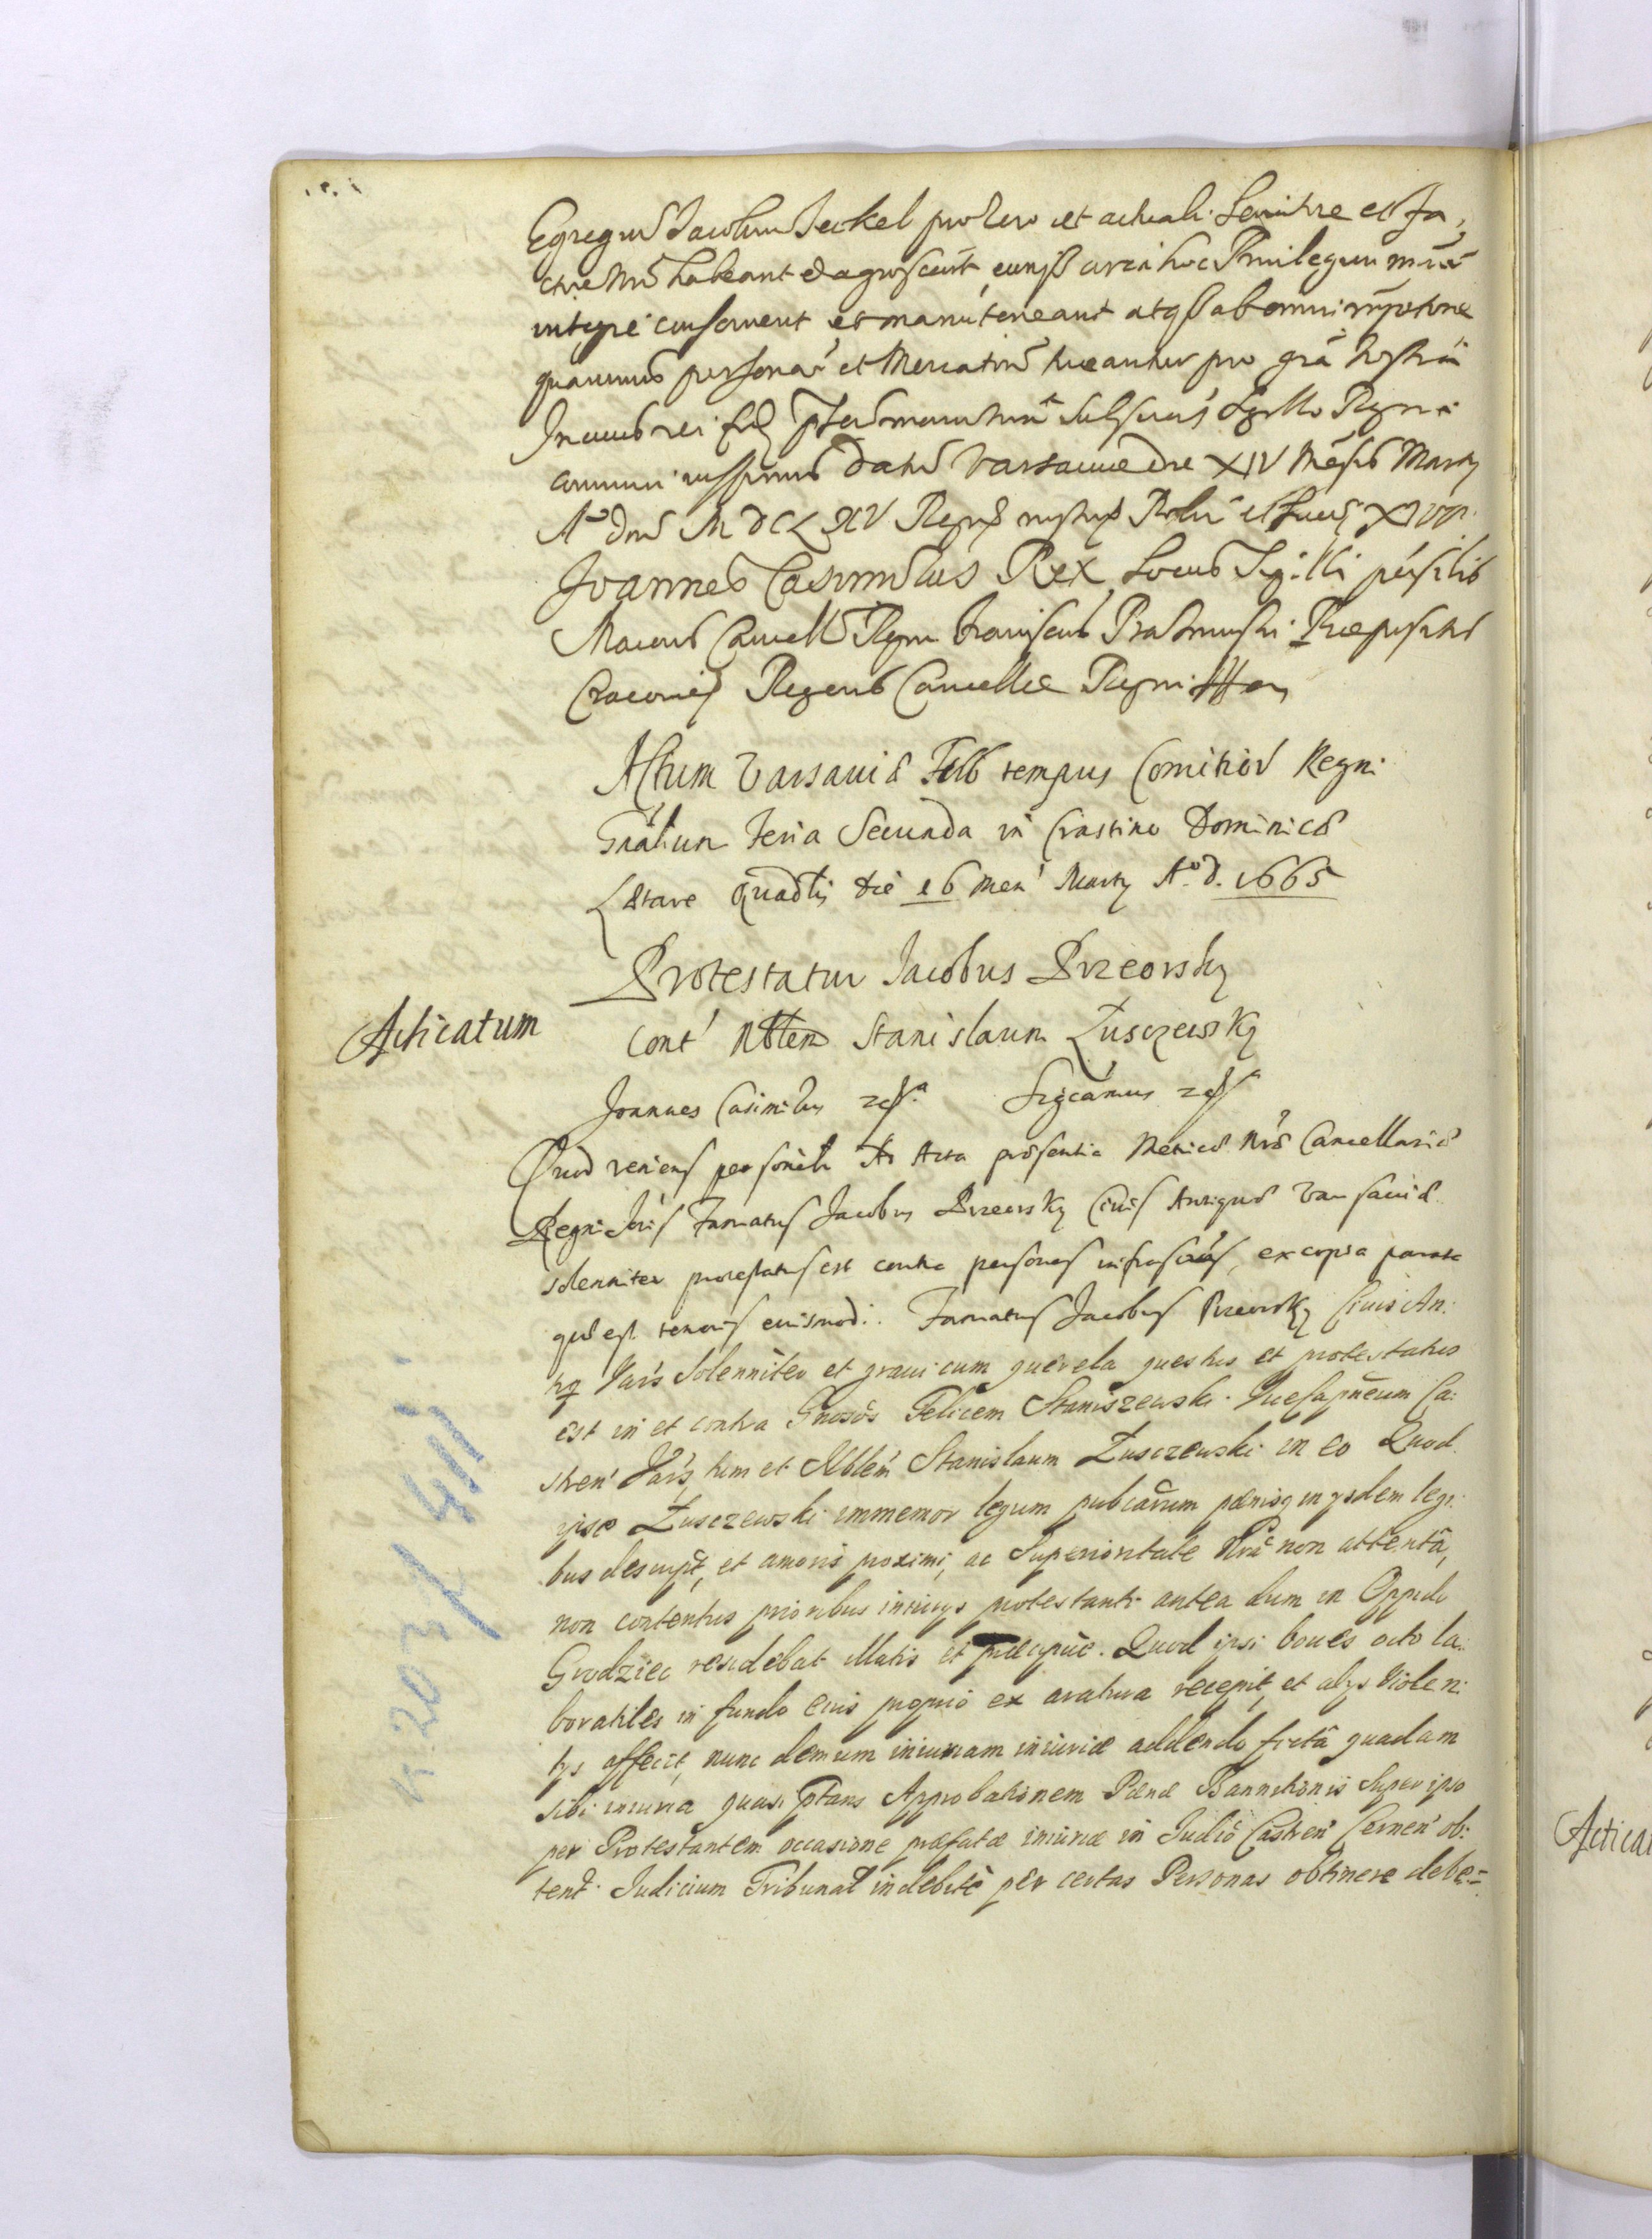 Egregium Jacobum Jeckel pro vero et actuali Servitore et Fa,
ctore Nro habeant et agnoscant, eumq circa hoc Privilegium nrm
integre conservent et manuteneant atq ab omni impetitione
quarumvis personar et Mercatoru tueantur pro gra Nostra
In cuius rei fid pntes manu nra subscrips Sigillo Regni
communi iussimus Datu Varsaviae Die XIV Mensis Marty
Ao Dni MDCLXV Regnor nostror Polon et Suec XVII
Joannes Casimirus Rex Locus Sigilli pensilis
Maioris Cancell Regni Franciscus Prazmowski Praepositus
Cracovien Regens Cancellae Regni
Actum Varsaviæ Felb tempus Comitior Regni
Gralium Feria Secunda in Crastino Dominicæ
Lætare Quadlis die 16 Men' Marty Ao. d. 1665
Protestatur Jacobus Przeorsky
Acticatum
Cont' Nblem Stanislaum Zusczewsky
Joannes Casimirus Sigcamus
Quod veniens personalr Ad Acta præsentia Metricæ Nræ Cancellariæ
Regni Joris Famatus Jacobus Przeorsky Civis Antiquæ Varsaviæ
solenniter protestatus est contra personas infrascrias, ex copia parata
quæ est tenoris eiusmodi. Famatus Jacobus Przeorsky Civis An:
tiq Vars Solenniter et gravi cum querela questus et protestatus
est in et contra Gnosos Felicem Staniszewski Vicesapneum Ca:
stren' Vars, tum et Nblem Stanislaum Zusczewski in eo Quod
ipse Zusczewski immemor legum publicarum pænisq in ysdem legi:
bus descript, et amoris proximi, ac Superioritate Nra non attenta,
non contentus prioribus iniurys protestanti antea dum in Oppido
Grodziec residebat illatis et præcipue. Quod ipsi boves octo la:
boratiles in fundo eius proprio ex aratura recepit, et alys violen:
tys affecit, nunc demum iniuriam iniuriæ addendo ficta quadam
sibi iniuria quasi ptans Approbationem Pænæ Bannitionis Super ipso
per Protestantem occasione præfatæ iniuriæ in Judio Castren' Cernen' ob:
tent. Judicium Tribunal indebite per certas Personas obtinere debe=
k 203/411
Acticat